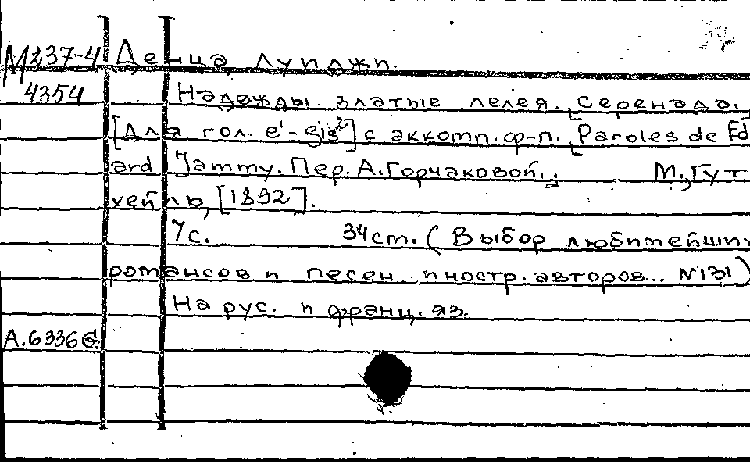 М237-4 Денца, Луиджи.
4354 Надежды златые лелея. Серенада.
[Для гол. e¹-gis²] с аккомп. ф-п. [Paroles de Ed
ard Jammy. Пер. А. Горчаковой.] М., Гут
хейль, [1892].
7с. 34см. (Выбор любимейши
романсов и песен иностр. авторов... №131)
На рус. и франц. яз.
А.6336б.